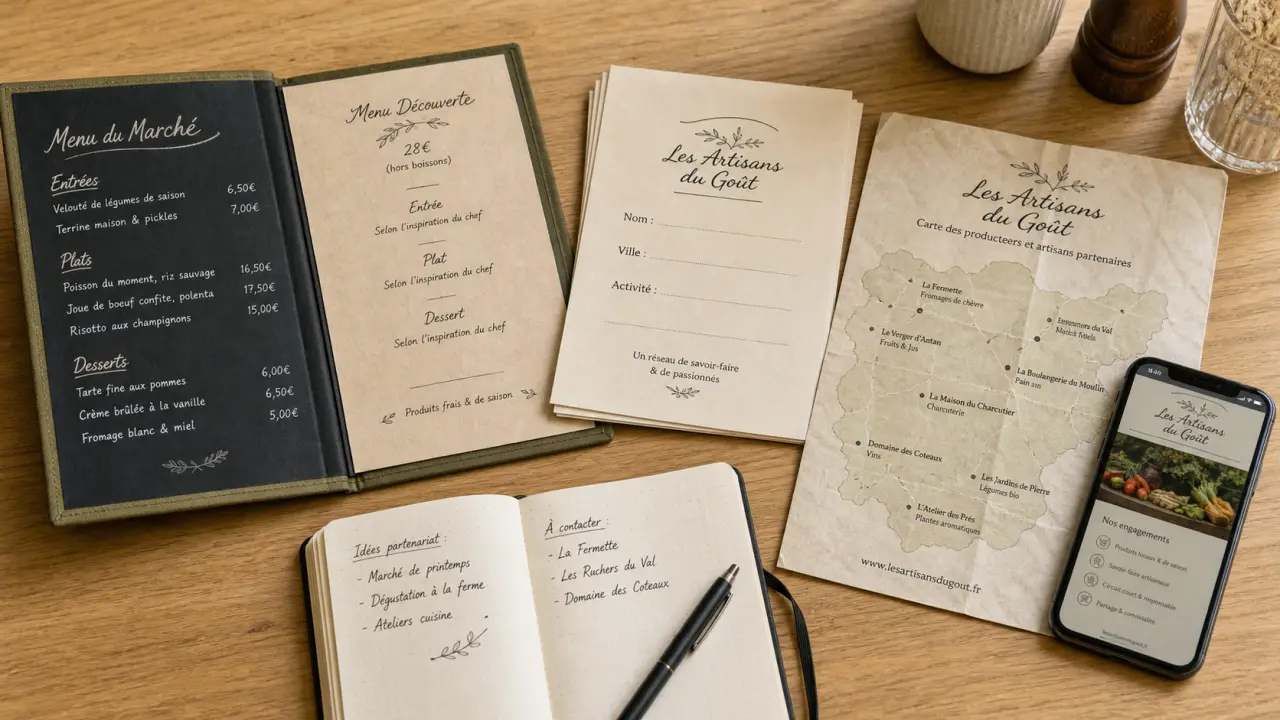 Menu du Marché
Entrées
Velouté de légumes de saison 6,50€
Terrine maison & pickles 7,00€
Plats
Poisson du moment, riz sauvage 16,50€
Joue de boeuf confite, polenta 17,50€
Risotto aux champignons 15,00€
Desserts
Tarte fine aux pommes 6,00€
Crème brûlée à la vanille 6,50€
Fromage blanc & miel 5,00€
Menu Découverte
28€
(hors boissons)
Entrée
Selon l'inspiration du chef
Plat
Selon l'inspiration du chef
Dessert
Selon l'inspiration du chef
Produits frais & de saison
Les Artisans
du Goût
Nom :
Ville :
Activité :
Un réseau de savoir-faire
& de passionnés
Les Artisans
du Goût
Carte des producteers et artisans partenaires
La Fermette
Fromages de chèvre
du Val
Le Verger d'Antan
Fruits & Jus
La Boulangerie du Moulin
Pain
La Maison du Charcutier
Charcuterie
Domaine des Coteaux
Vins
Les Jardins de Pierre
Légumes bio
L'Atelier des Prés
Plantes aromatiques
www.lesartisansdugout.fr
Les Artisans
du Goût
Nos engagements
Produits locaux & de saison
Savoir-faire
Circuit court & responsable
Partage & convivialité
Idées partenariat :
- Marché de printemps
- Dégustation à la ferme
- Ateliers cuisine
À contacter :
- La Fermette
- Les Ruchers du Val
- Domaine des Coteaux